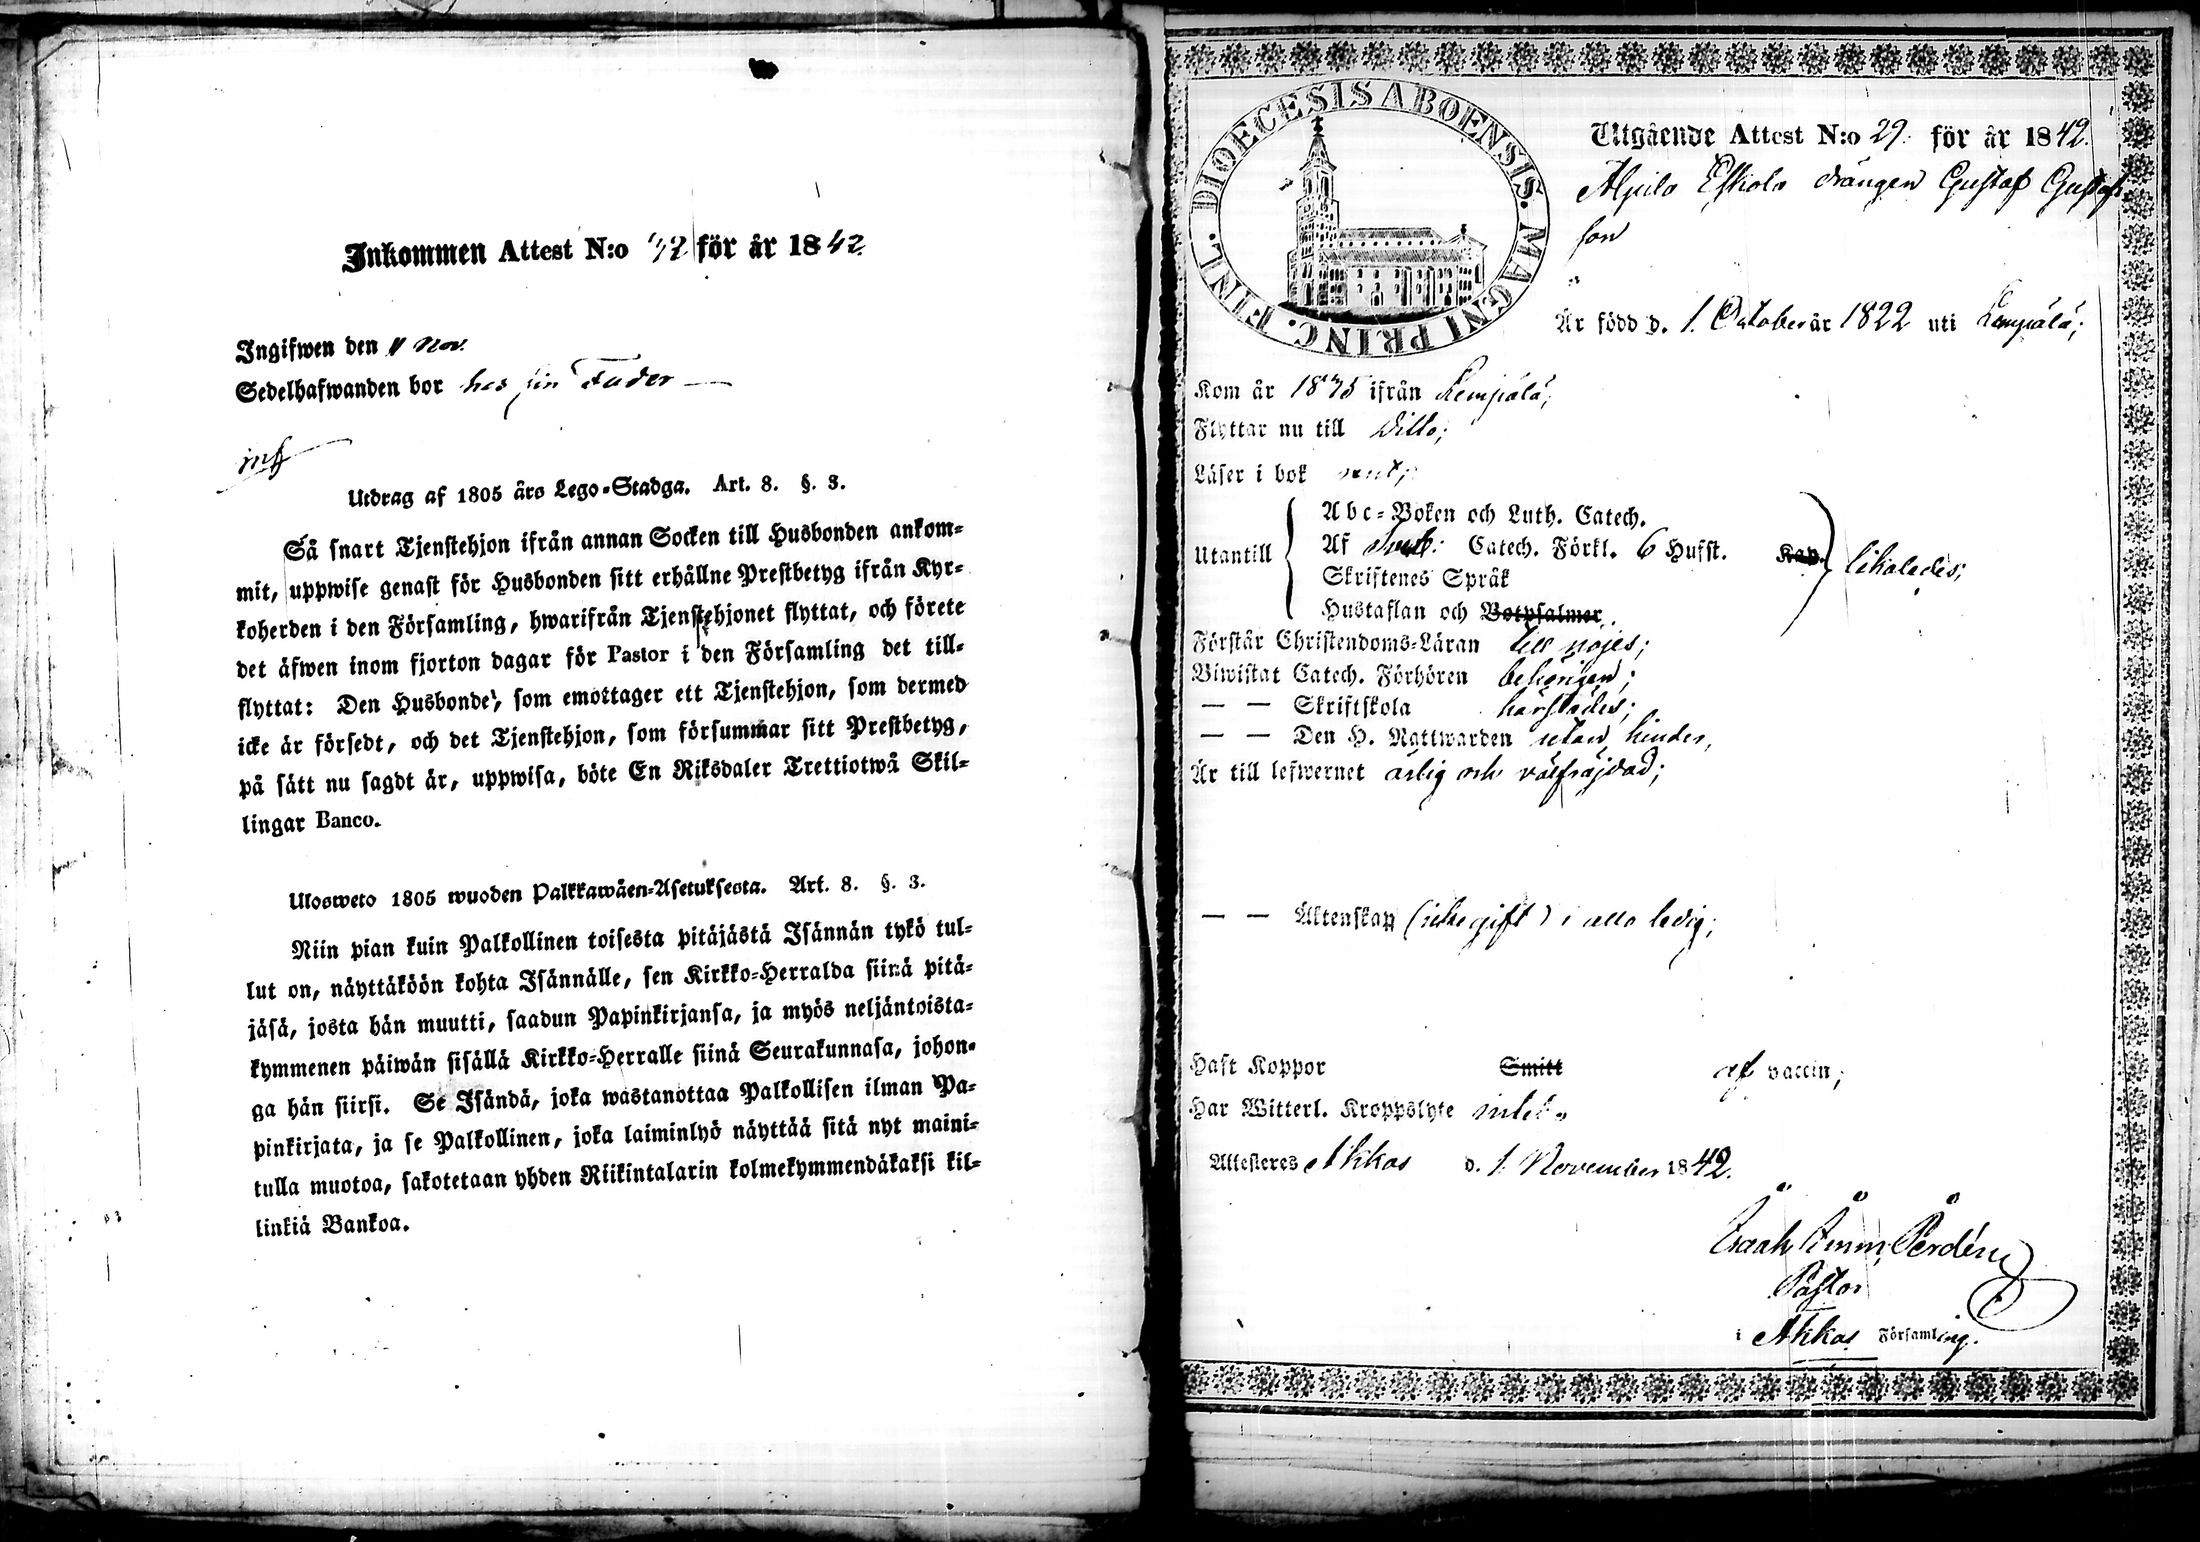 Inkommen Attest N:o 32 för år 1842.
Ingifwen den 11 Nov.
Sedelhafwanden bor hos sin Fader —
inf
Utdrag af 1805 års Lego-Stadga. Art. 8. §. 3.
Så snart Tjenstehjon ifrån annan Socken till Husbonden ankom-
mit, uppwise genast för Husbonden sitt erhållne Prestbetyg ifrån Kyr-
koherden i den Församling, hwarifrån Tjenstehjonet flyttat, och förete
det äfwen inom fjorton dagar för Pastor i den Församling det till-
flyttat: Den Husbonde, som emottager ett Tjenstehjon, som dermed
icke är försedt, och det Tjenstehjon, som försummar sitt Prestbetyg,
på sätt nu sagdt är, uppwisa, böte En Riksdaler Trettiotwå Skil-
lingar Banco.
Ulosweto 1805 wuoden Palkkawäen-Asetuksesta. Art. 8. §. 3.
Niin pian kuin Palkollinen toisesta pitäjästä Isännän tykö tul-
lut on, näyttäköön kohta Isännälle, sen Kirkko-Herralda siinä pitä-
jäsä, josta hän muutti, saadun Papinkirjansa, ja myös neljäntoista-
kymmenen päiwän sisällä Kirkko-Herralle siinä Seurakunnasa, johon-
ga hän siirsi. Se Isändä, joka wastanottaa Palkollisen ilman Pa-
pinkirjata, ja se Palkollinen, joka laiminlyö näyttää sitä nyt maini-
tulla muotoa, sakotetaan yhden Riikintalarin kolmekymmendäkaksi kil-
linkiä Bankoa.
DIOECESIS ABOENSIS. MAGNI PRINC. FINL.
Utgående Attest N:o 29. för år 1842.
Alpila Eskola drängen Gustaf Gustafs
son
Är född d. 1. October år 1822 uti Lempälä;
Kom år 1835 ifrån Lempälä;
Flyttar nu till Ditto;
Läser i bok rent;
Utantill
Abc-Boken och Luth. Catech.
Af Sveb: Catech. Förkl. 6 Hufst. Kap.
Skriftenes Språk
Hustaflan och Botpsalmer
likaledes;
Förstår Christendoms-Läran till nöjes;
Biwistat Catech. Förhören behörigen;
— — Skriftskola härstädes;
— — Den H. Nattwarden utan hinder,
Är till lefwernet ärlig och välfräjdad;
— — Äktenskap (icke gift) i allo ledig;
Haft Koppor Smitt af vaccin;
Har Witterl. Kroppslyte intet.
Attesteres Akkas d. 1. November 1842.
Isaak Imm. Perdén
Pastor
i Akkas Församling.